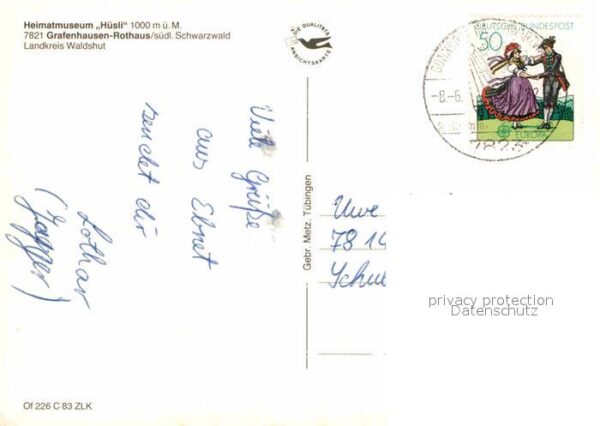 Heimatmuseum „Hüsli" 1000 m ü. M.
7821 Grafenhausen-Rothaus/südl. Schwarzwald
Landkreis Waldshut
DIE QUALITÄTS
ANSICHTSKARTE
DEUTSCHE BUNDESPOST
50
EUROPA
-8.-6.
7823
Viele Grüße
aus Ebnet
sendet dir
Lothar
Gebr. Metz, Tübingen
Uwe
78 14
Schul
privacy protection
Datenschutz
Of 226 C 83 ZLK